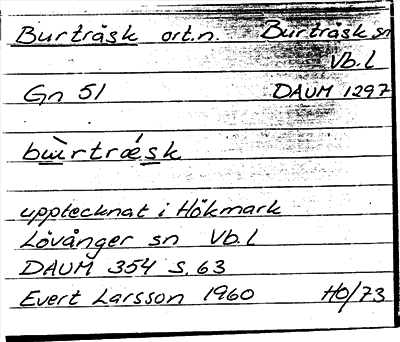 Burträsk ort.n. Burträsk sn
Vb.l
Gn 51 DAUM 1297
bɯ̀rtrǽsk
upptecknat i Hökmark
Lövånger sn Vb.l
DAUM 354 s. 63
Evert Larsson 1960 HO/73